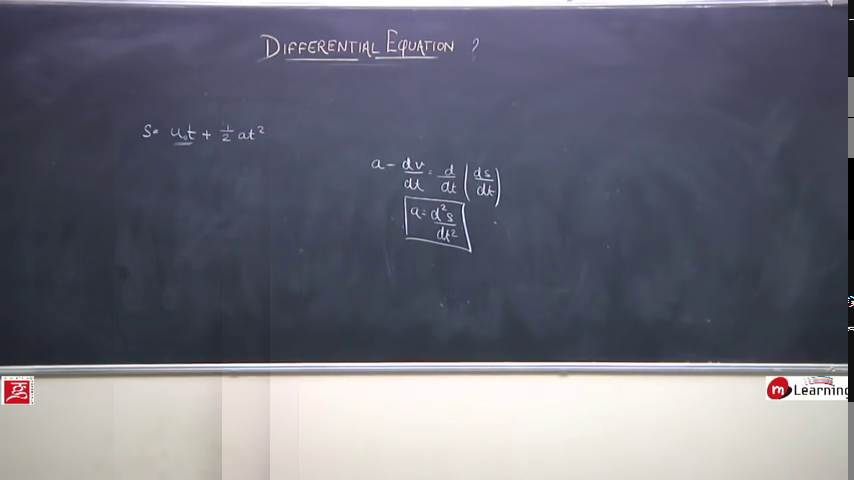 DIFFERENTIAL EQUATION ?
S= u₀t + 1/2 at²
a = dv/dt = d/dt (ds/dt)
a = d²s/dt²
m Learning